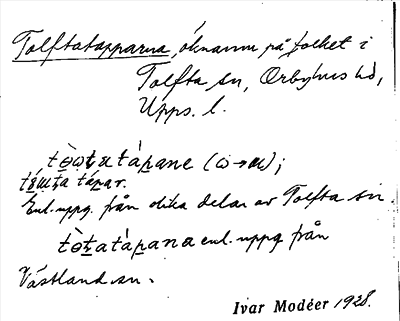 Tolftatapparna, öknamn på folket i
Tolfta sn, Örbyhus hd,
Upps. l.
(ω→ɯ);
tápar.
Enl. uppg. från olika delar av Tolfta sn
enl. uppg. från
Västland sn.
Ivar Modéer 1928.